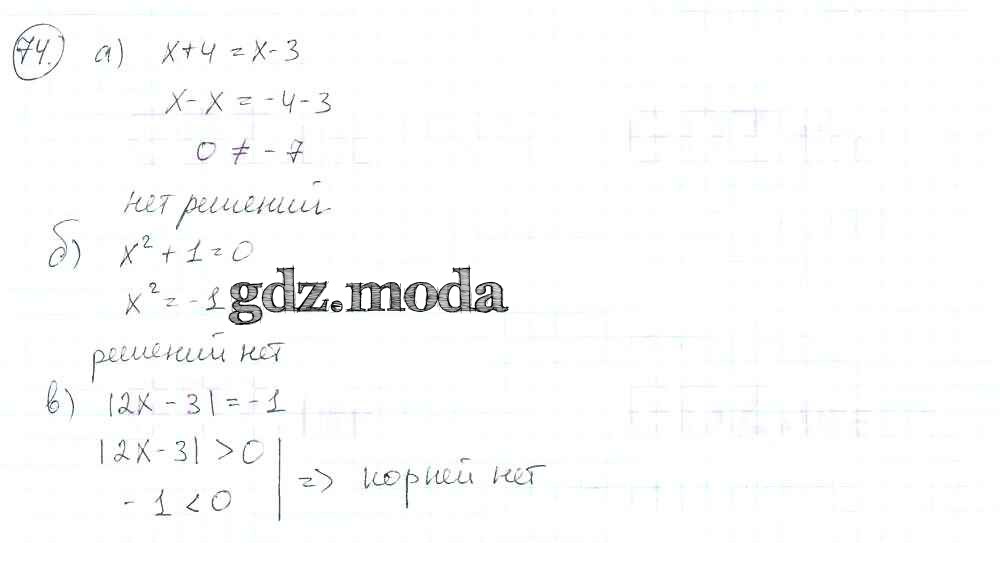 74. а) x+4 = x-3
x - x = -4-3
0 ≠ -7
нет решений
б) x² + 1 = 0
x² = -1
gdz.moda
решений нет
в) |2x - 3| = -1
|2x-3| > 0
-1 < 0
=> корней нет